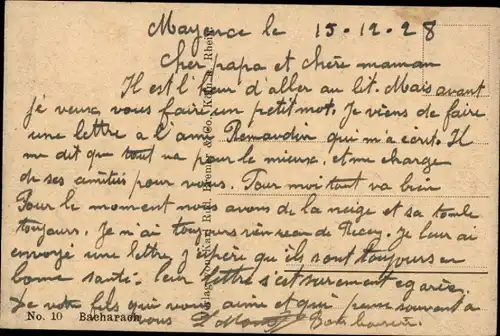 Mayence le 15-12-28
Cher papa et chère maman
Il est l'heur d'aller au lit. Mais avant
je veux vous faire un petit mot. Je viens de faire
une lettre a l'ami qui m'a ecrit. Il
me dit que tout va pour le mieux, et me charge
de ses amitiés pour vous. Pour moi tout va bien
Pour le moment nous avons de la neige et sa tombe
toujours. Je n'ai toujours rien de Je leur ai
envoyé une lettre, j'espère qu'ils sont toujours en
bonne santé. leur lettre s'est surement egarée.
De votre fils qui vous aime et qui pense souvent a
vous
No. 10 Bacharach